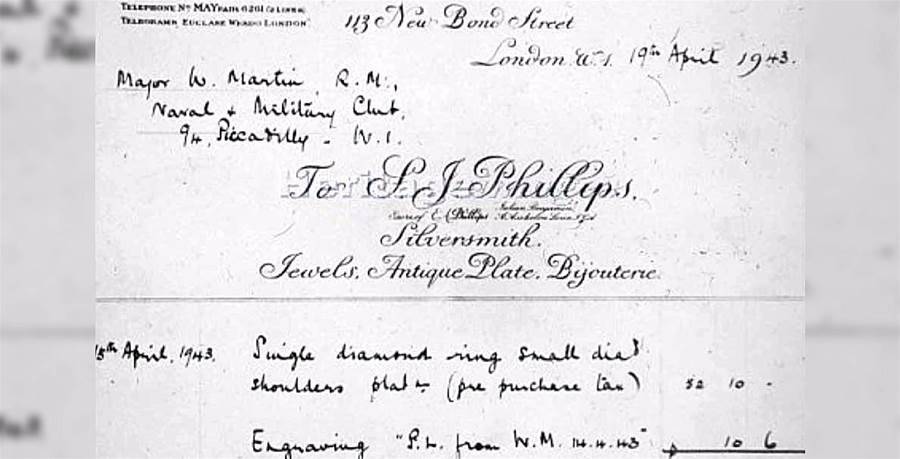 TELEPHONE No MAYFAIR 6261 (2 LINES)
TELEGRAMS EUCLASE WESDO LONDON
113 New Bond Street
London. W.1. 19th April 1943.
Major W. Martin, R.M.,
Naval & Military Club,
94, Piccadilly - W.1.
To S. J. Phillips.
Silversmith.
Jewels, Antique Plate, Bijouterie.
15th April, 1943. Single diamond ring small diad
shoulders platm (pre purchase tax) 52 10 -
Engraving "P.L. from W.M. 14.4.43" 10 6